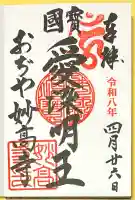 奉拝
令和八年
四月廿六日
國寶
愛染明王
おぢや妙高寺